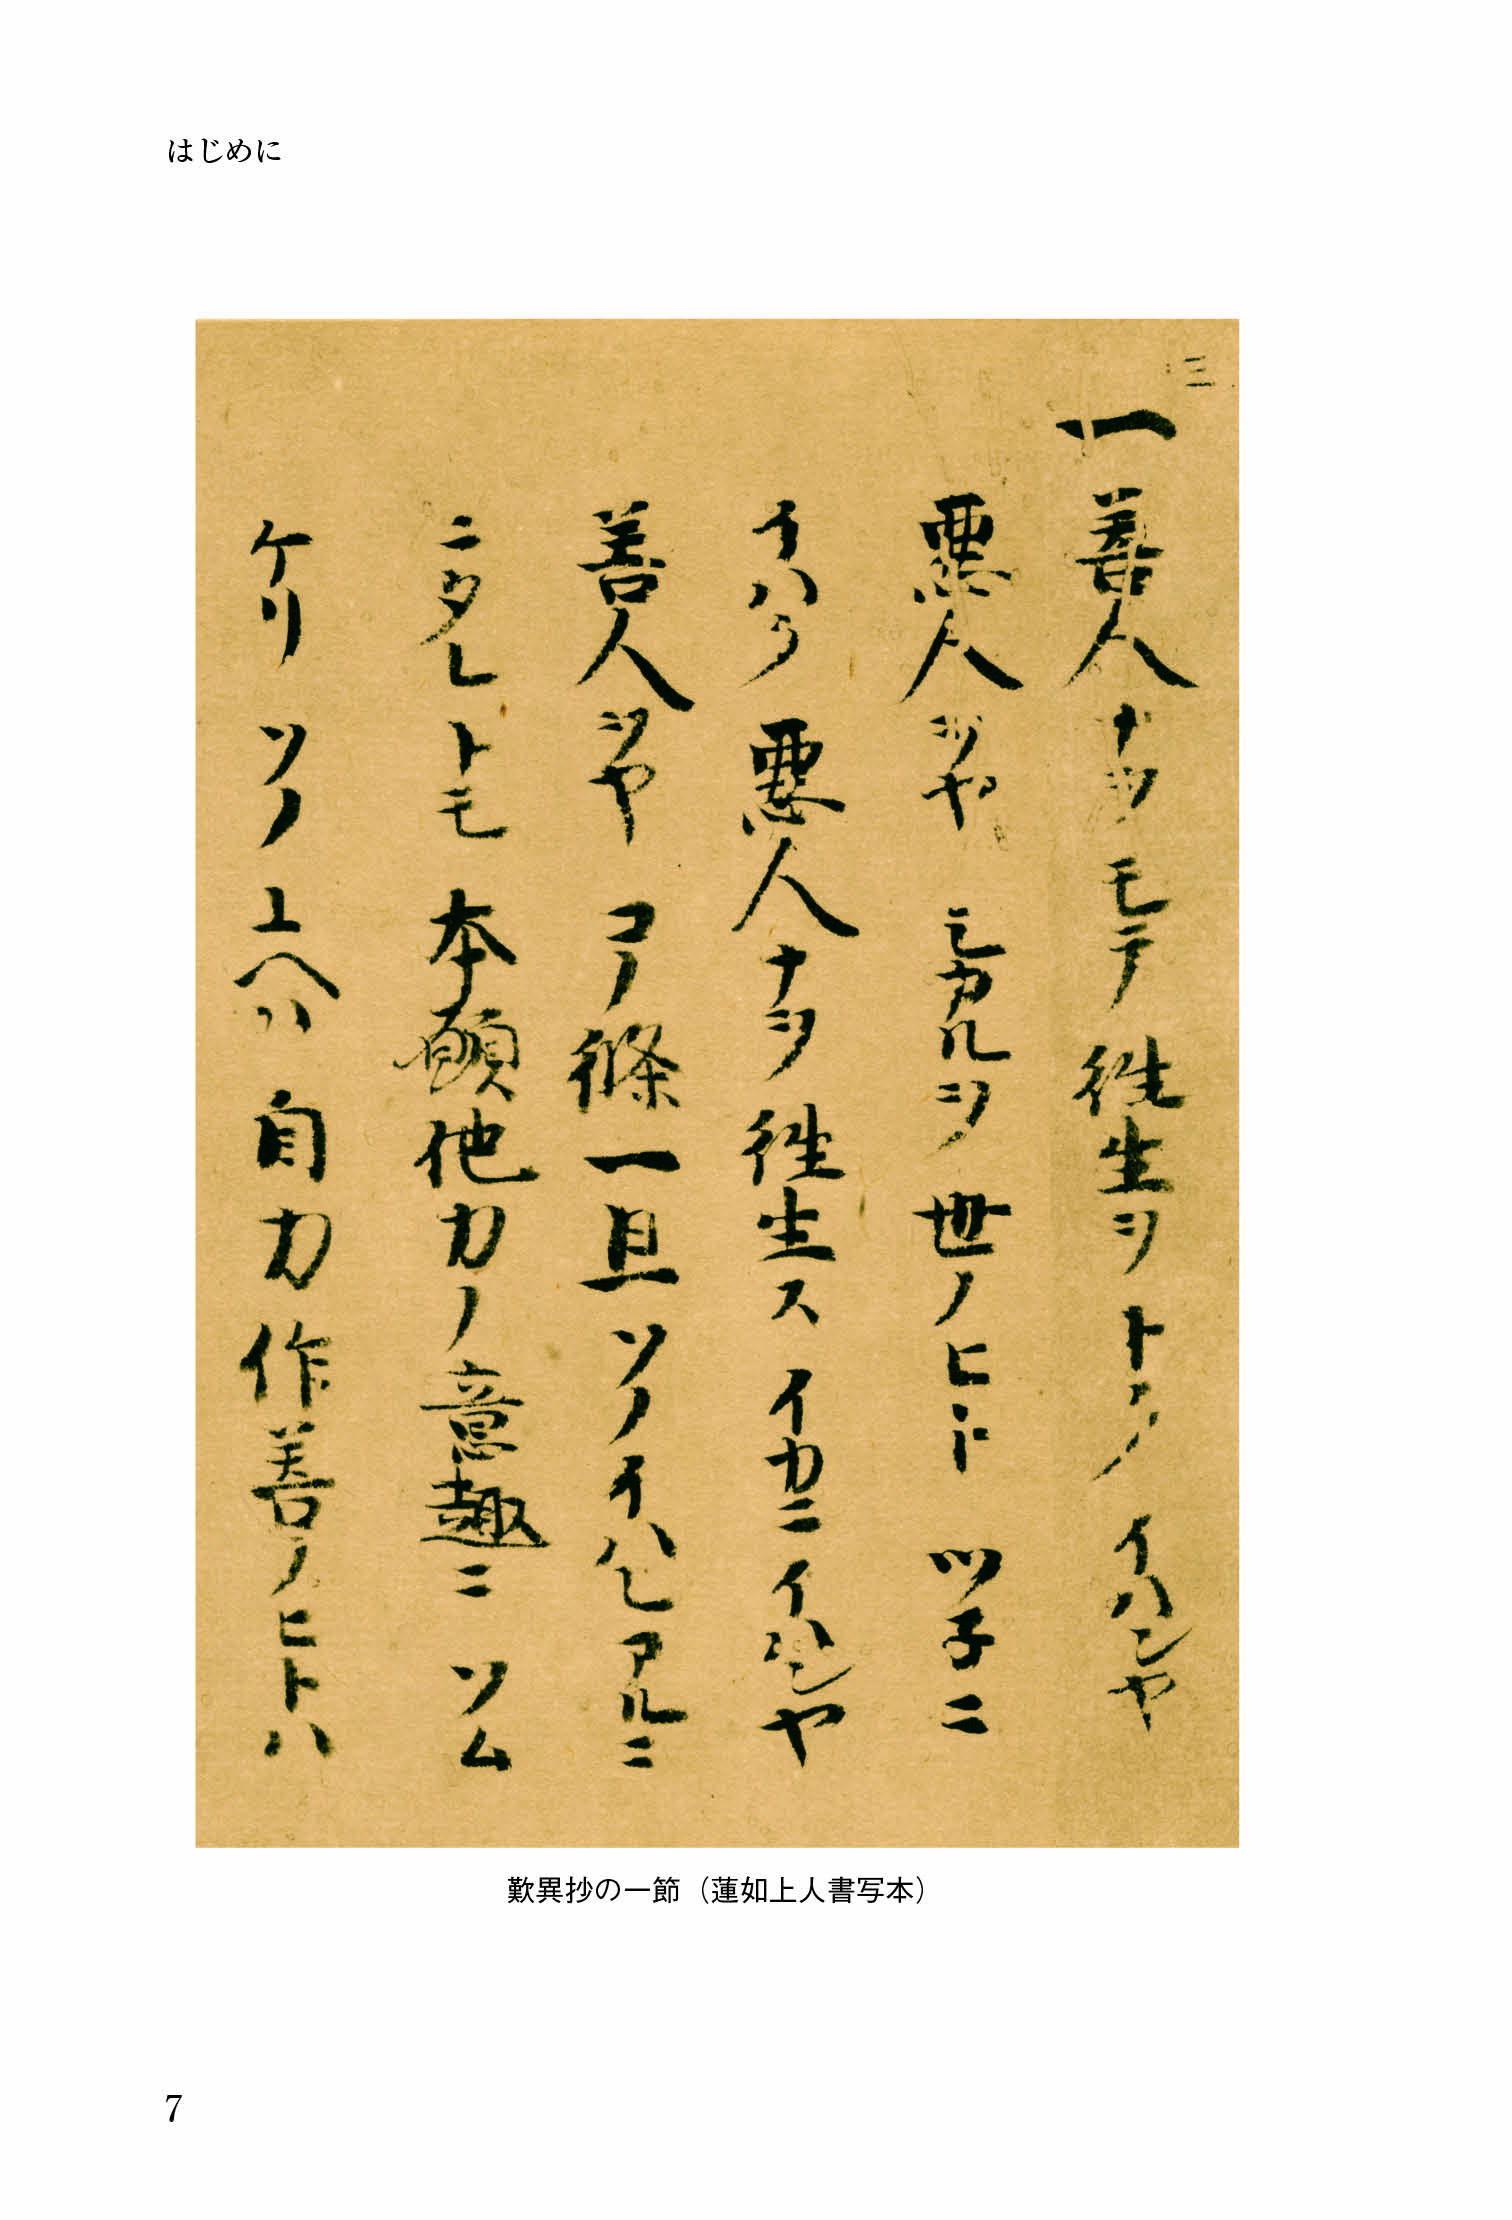 はじめに
三
一善人ナヲモテ徃生ヲトクイハンヤ
悪人ヲヤシカルヲ世ノヒトツ子ニ
イハク悪人ナヲ徃生スイカニイハンヤ
善人ヲヤコノ條一旦ソノイハレアルニ
ニタレトモ本願他力ノ意趣ニソム
ケリソノユヘハ自力作善ノヒトハ
歎異抄の一節（蓮如上人書写本）
7